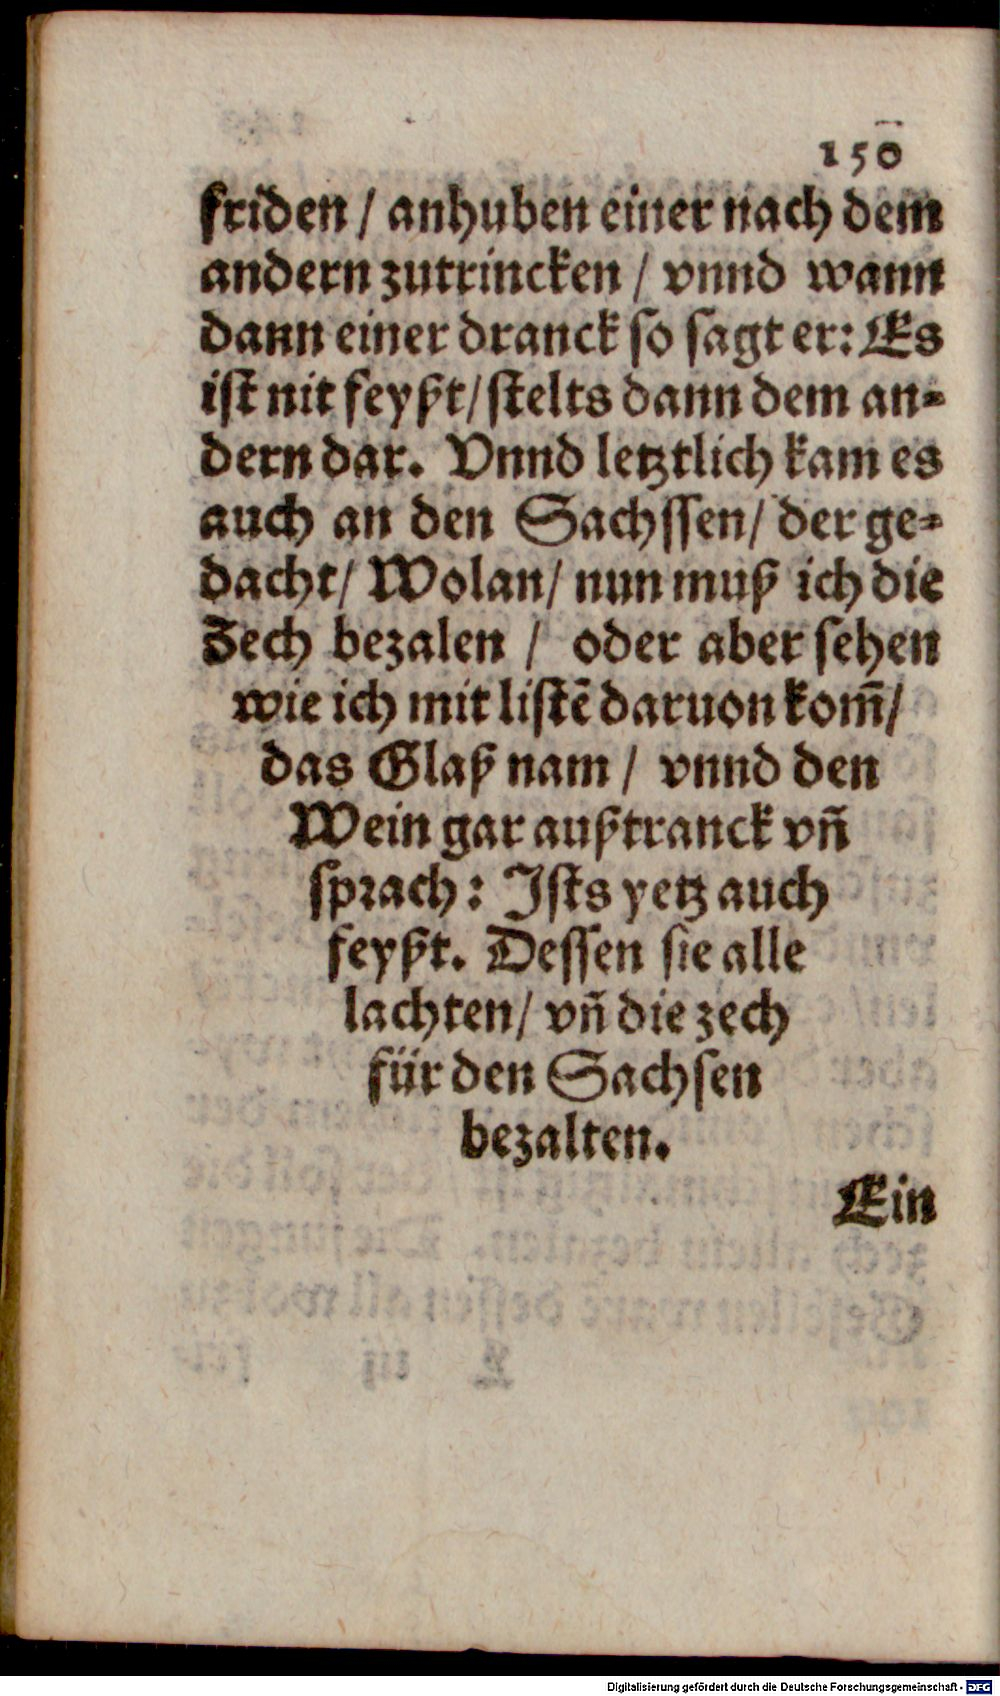 150
friden / anhuben einer nach dem
andern zutrincken / vnnd wann
dann einer dranck so sagt er: Es
ist nit feyßt / stelts dann dem an⸗
dern dar. Vnnd letztlich kam es
auch an den Sachssen / der ge⸗
dacht / Wolan / nun muß ich die
Zech bezalen / oder aber sehen
wie ich mit listẽ daruon kom̃ /
das Glaß nam / vnnd den
Wein gar außtranck vñ
sprach: Ists yetz auch
feyßt. Dessen sie alle
lachten / vñ die zech
für den Sachsen
bezalten.
Ein
Digitalisierung gefördert durch die Deutsche Forschungsgemeinschaft - DFG